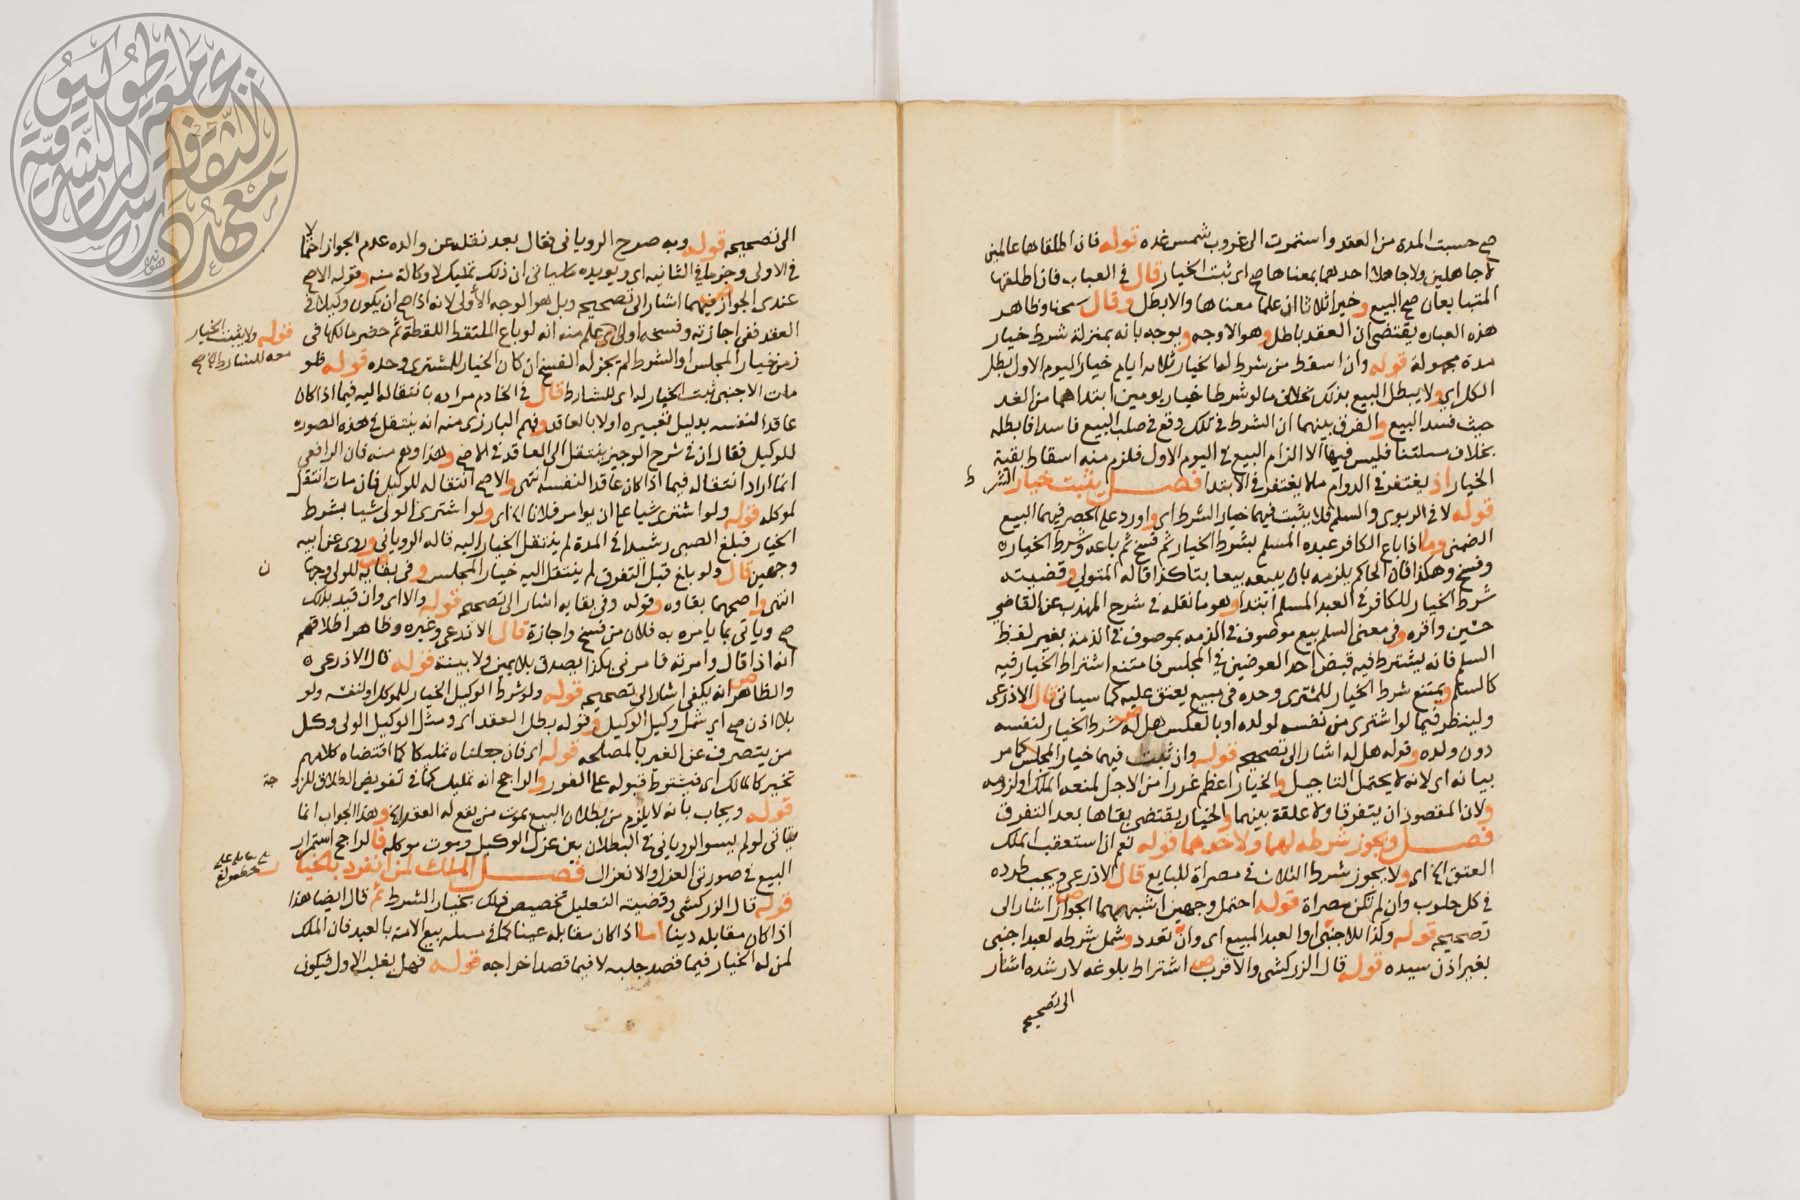 صح حسبت المدة من العقد واستمرت الى غروب شمس غده قوله فان اطلقاها عالمين
لا جاهلين ولا جاهلا احدهما بمعناها صح اى ثبت الخيار قال فى العباب فان اطلقها
المتبايعان صح البيع وخيرا ثلاثا ان علما معناها والا بطل وقال شيخنا وظاهر
هذه العباره يقتضى ان العقد باطل وهو الاوجه ويوجه بانه بمنزلة شرط خيار
مدة مجهولة قوله وان اسقط من شرط لهما الخيار ثلاثه ايام خيار اليوم الاول بطل
الكل اى ولا يبطل البيع بذلك بخلاف مالو شرطا خيار يومين ابتداهما من الغد
حيث فسد البيع والفرق بينهما ان الشرط فى تلك وقع فى صلب البيع فاسدا فابطله
بخلاف مسئلتنا فليس فيها الا الزام البيع فى اليوم الاول فلزم منه اسقاط بقية
الخيار اذ يغتفر فى الدوام مالا يغتفر فى الابتدا فصل يثبت خيار الشرط
قوله لا فى الربوى والسلم فلا يثبت فيهما خيار الشرط اى واورد على الحصر فيهما البيع
الضمنى وما اذا باع الكافر عبده المسلم بشرط الخيار ثم فسخ ثم باعه وشرط الخيار
وفسخ وهكذا فان الحاكم يلزمه بان يبيعه بيعا بتا كذا قاله المتولى وقضيته
شرط الخيار للكافر فى العبد المسلم ابتدا وهو ما نقله فى شرح المهذب عن القاضى
حسين واقره وفى معنى السلم بيع موصوف فى الذمه بموصوف فى الذمة بغير لفظ
السلم فانه يشترط فيه قبض احد العوضين فى المجلس فامتنع اشتراط الخيار فيه
كالسلم ويمتنع شرط الخيار للمشترى وحده فى مبيع يعتق عليه كما سياتى قال الاذرعى
ولينظر فيما لو اشترى من نفسه لولده او بالعكس هل له شرط الخيار لنفسه
دون ولده وقوله هل له اشار الى تصحيحه قوله وان ثبت فيهما خيار المجلس كما مر
بيانه اى لانه لا يحتمل التاجيل والخيار اعظم غررا من الاجل لمنعه الملك او لزومه
ولان المقصود ان يتفرقا ولا علقة بينهما والخيار يقتضى بقاها بعد التفرق
فصل ويجوز شرطه لهما ولاحدهما قوله نعم ان استعقب الملك
العتق الخ اى ولا يجوز شرط الثلاث فى مصراة للبايع قال الاذرعى ويجب طرده
فى كل حلوب وان لم تكن مصراة قوله احتمل وجهين اشبههما الجواز اشار الى
تصحيحه قوله ولذا للاجنبى او العبد المبيع اى وان تعدد وشمل شرطه لعبد اجنبى
بغير اذن سيده قوله قال الزركشى والاقرب اشتراط بلوغه لا رشده اشار
الى تصحيحه
الى تصحيحه قوله وبه صرح الرويانى فقال بعد نقله عن والده عدم الجواز احتمالا
فى الاولى وجزما فى الثانيه اى ويويده ماسياتى ان ذلك تمليك لا وكالة منه وقوله الاصح
عندى الجواز فيهما اشار الى تصحيحه وبل هو الوجه الأولى لانه اذا صح ان يكون وكيلا فى
العقد ففى اجازته وفسخه اولى علم منه انه لو باع الملتقط اللقطة ثم حضر مالكها فى
زمن خيار المجلس او الشرط لم يجز له الفسخ ان كان الخيار للمشترى وحده قوله فلو
مات الاجنبى ثبت الخيار له اى للشارط قال فى الخادم مراده بانتقاله اليه فيما اذا كان
عاقدا لنفسه بدليل تعبيره اولا بالعاقد وفهم البارزى منه انه ينتقل فى هذه الصوره
للوكيل فقال ان فى شرح الوجيز ينتقل الى العاقد فى الاصح وهذا وهم منه فان الرافعى
انما اراد انتقاله فيما اذا كان عاقدا لنفسه انتهى والاصح انتقاله للوكيل فان مات انتقل
لموكله قوله ولو اشترى شيا على ان يوامر فلانا الخ اى ولو اشترى الولى شيا بشرط
الخيار فبلغ الصبى رشيدا فى المدة لم ينتقل الخيار اليه قاله الرويانى وروى عن ابيه
وجهين قال ولو بلغ قبل التفرق لم ينتقل اليه خيار المجلس وفى بقايه للولى وجهان
انتهى واصحهما بقاوه وقوله وفى بقايه اشار الى تصحيحه قوله والا اى وان قيد بذلك
صح وياتى بما يامره به فلان من فسخ واجازة قال الاذرعى وغيره وظاهر اطلاقهم
انه اذا قال وامرته فامرنى بكذا يصدق بلا يمين ولا بينة قوله قال الاذرعى
والظاهر انه يكفى اشار الى تصحيحه قوله ولو شرط الوكيل الخيار للموكل او لنفسه ولو
بلا اذن صح اى شمل وكيل الوكيل وقوله بطل العقد اى ومثل الوكيل الولى وكل
من يتصرف عن الغير بالمصلحه قوله اى فان جعلناه تمليكا كما اقتضاه كلامهم
تخيير كالمالك اى فيشترط قبوله على الفور والراجح انه تمليك كما فى تفويض الطلاق للزوجة
قوله ويجاب بانه لا يلزم من بطلان البيع بموت من يقع له العقد الخ وهذا الجواب انما
ياتى لو لم يسو الرويانى فى البطلان بين عزل الوكيل وموت موكله فالراجح استمرار
البيع فى صورتى العزل والانعزال فصل الملك لمن انفرد بالخيار
قوله قال الزركشى وقضيته التعليل تخصيص ذلك بخيار الشرط ثم قال ايضا هذا
اذا كان مقابله دينا اما اذا كان مقابله عينا كما فى مسئله بيع الامة بالعبد فان الملك
لمن له الخيار فيما قصد جلبه لا فيما قصد اخراجه قوله فهل يغلب الاول فيكون
قوله ولا يثبت الخيار
معه للشارط الاصح